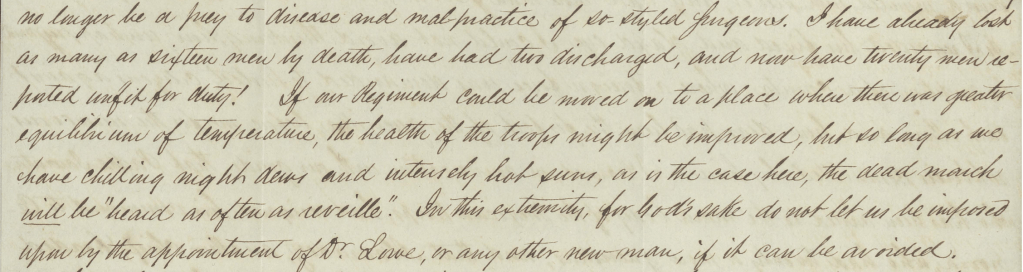 no longer be a prey to disease and malpractice of so-styled surgeons. I have already lost
as many as sixteen men by death, have had two discharged, and now have twenty men re-
ported unfit for duty! If our Regiment could be moved on to a place where there was greater
equilibrium of temperature, the health of the troops might be improved, but so long as we
have chilling night dews and intensely hot suns, as is the case here, the dead march
will be "heard as often as reveille". In this extremity, for God's sake do not let us be imposed
upon by the appointment of Dr. Lowe, or any other new man, if it can be avoided.